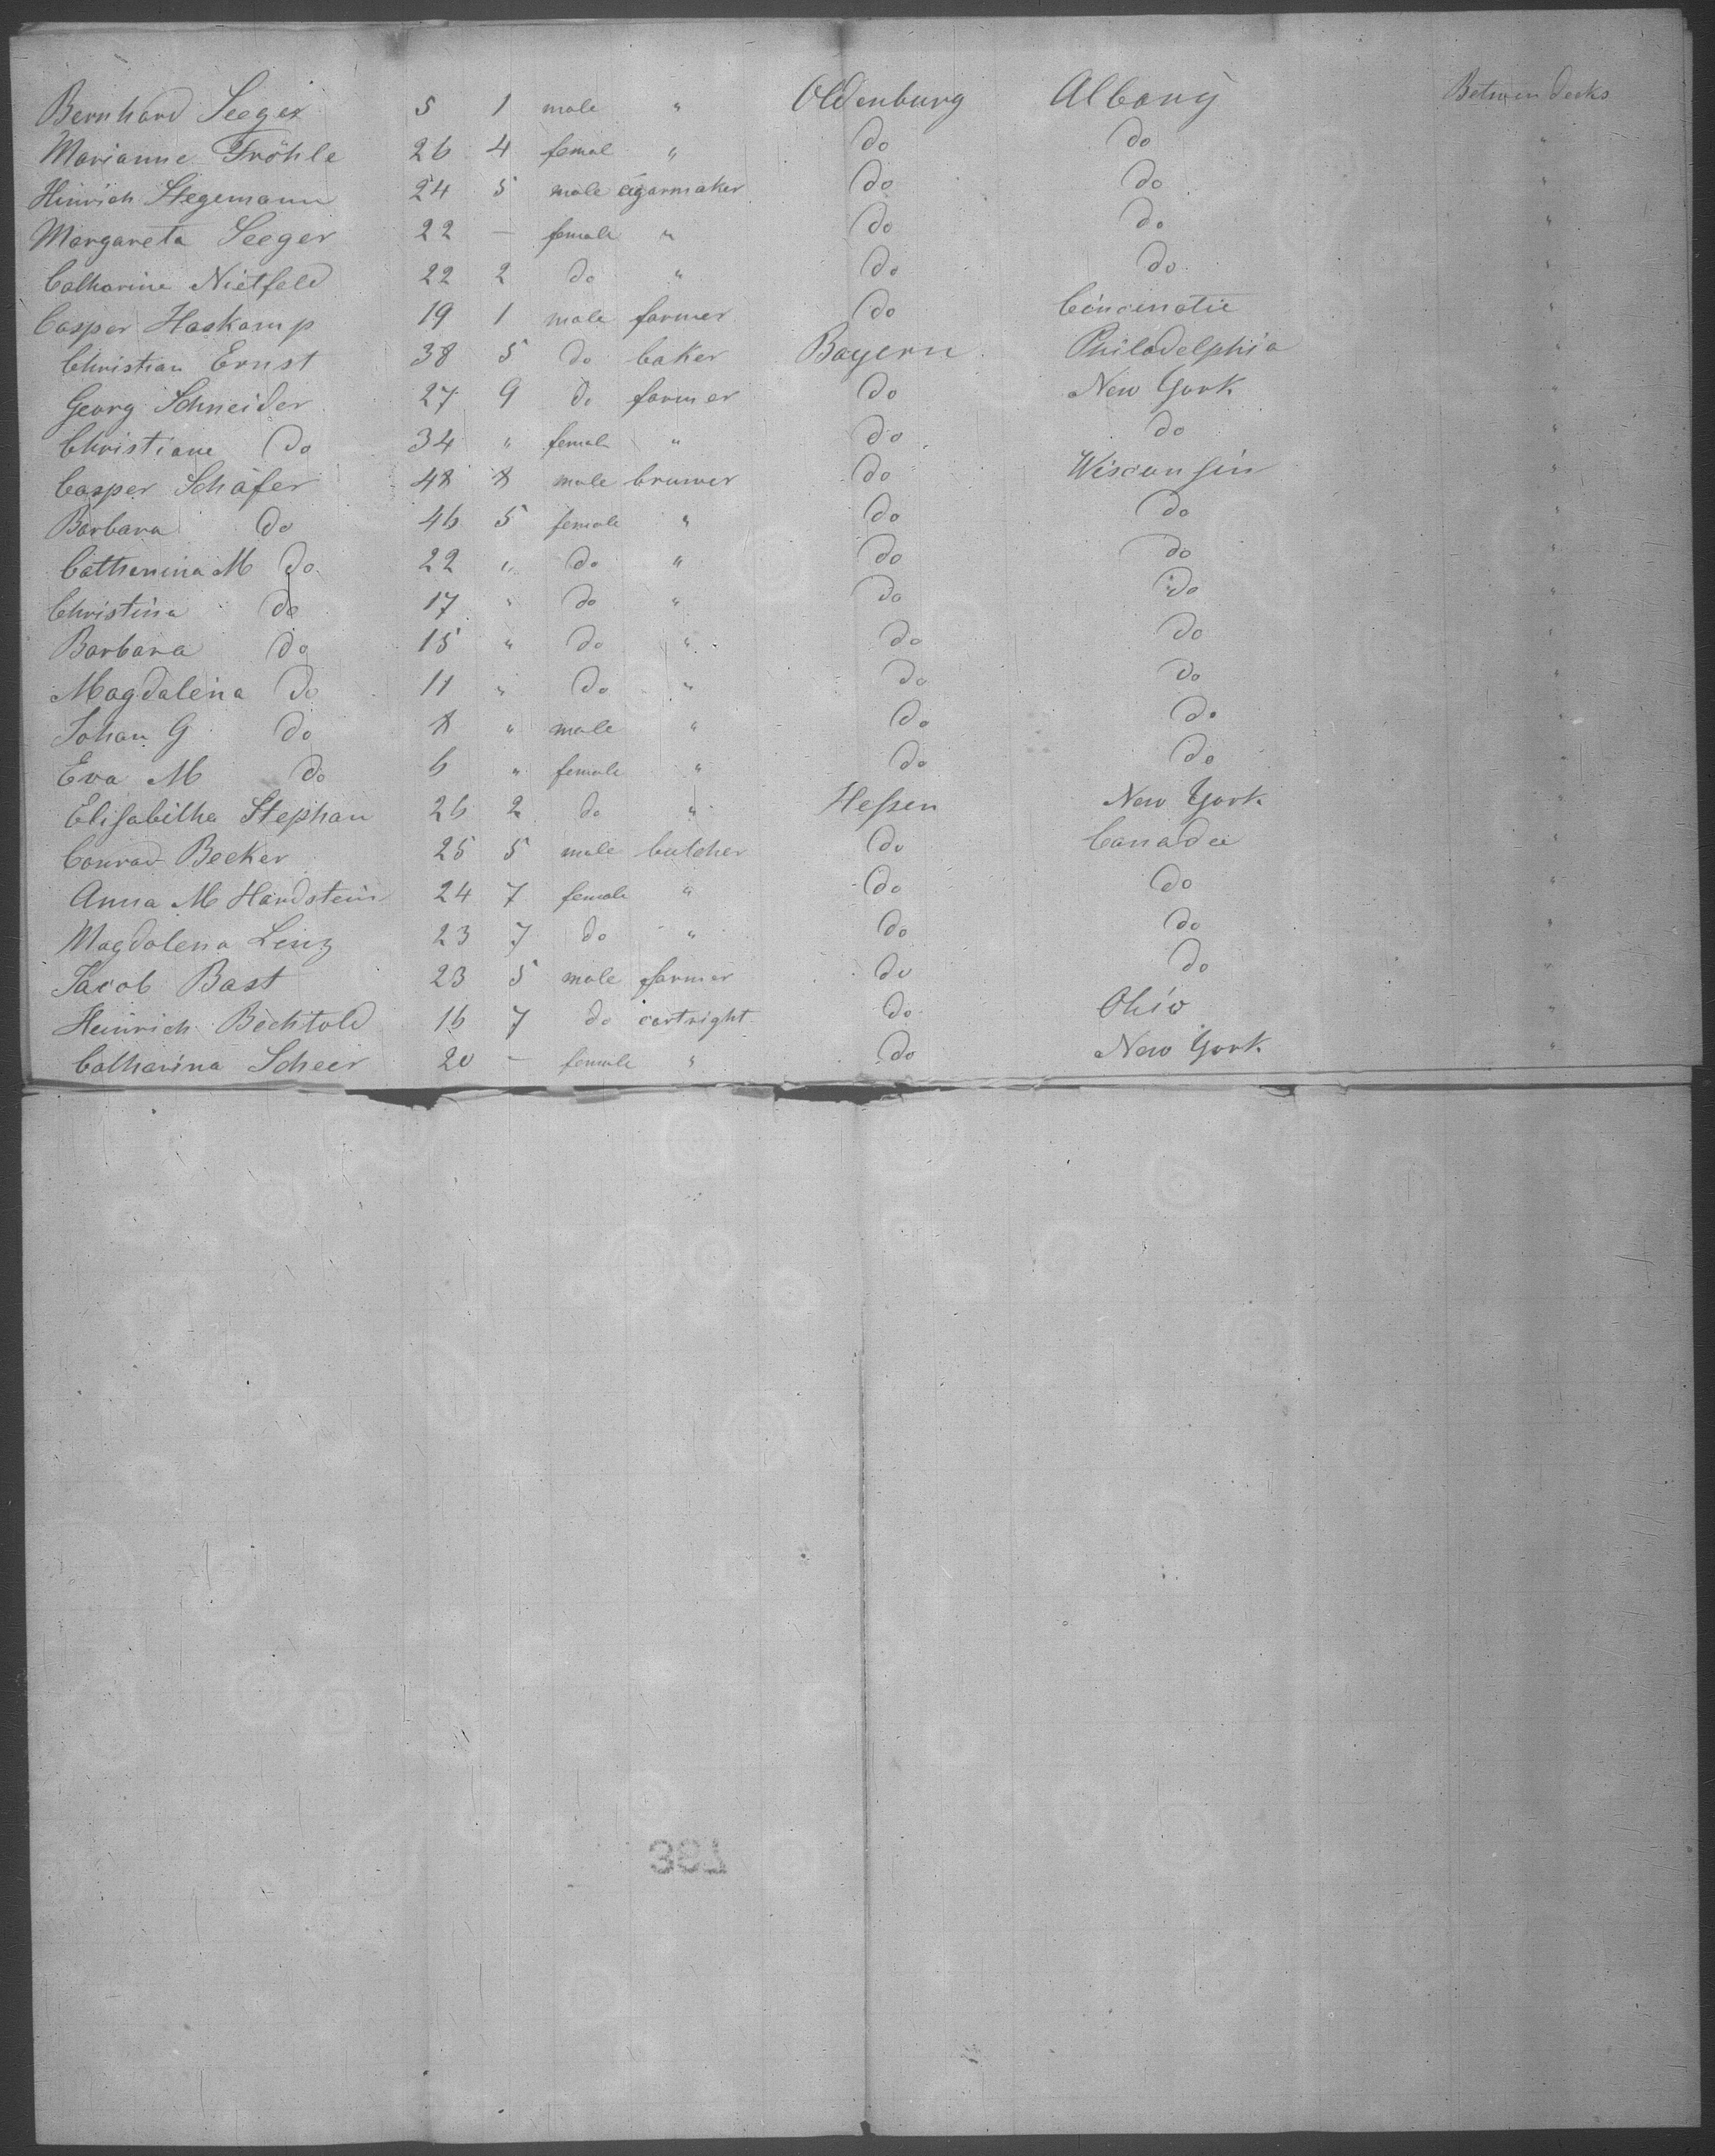 Bernhard Seeger 5 1 male " Oldenburg Albany Between decks
Marianne Fröhle 26 4 femal " do do "
Hinrich Stegemann 24 5 male cigarmaker do do "
Margareta Seeger 22 — female " do do "
Catharine Nietfeld 22 2 do " do do "
Casper Haskamp 19 1 male farmer do Cincinatie "
Christian Ernst 38 5 do baker Bayern Philadelphia "
Georg Schneider 27 9 do farmer do New York "
Christiane do 34 " femal " do do "
Casper Schäfer 48 8 male bruwer do Wisconsin "
Barbara do 46 5 female " do do "
Catharina M do 22 " do " do do "
Christina do 17 " do " do do "
Barbara do 15 " do " do do "
Magdalena do 11 " do " do do "
Johan G do 8 " male " do do "
Eva M do 6 " female " do do "
Elisabitha Stephan 26 2 do " Hessen New York "
Conrad Becker 25 5 male butcher do Canada "
Anna M Handstein 24 7 female " do do "
Magdalena Lenz 23 7 do " do do "
Jacob Bast 23 5 male farmer do do "
Heinrich Bechtold 16 7 do cartright do Ohio "
Catharina Scheer 20 — female " do New York "
397